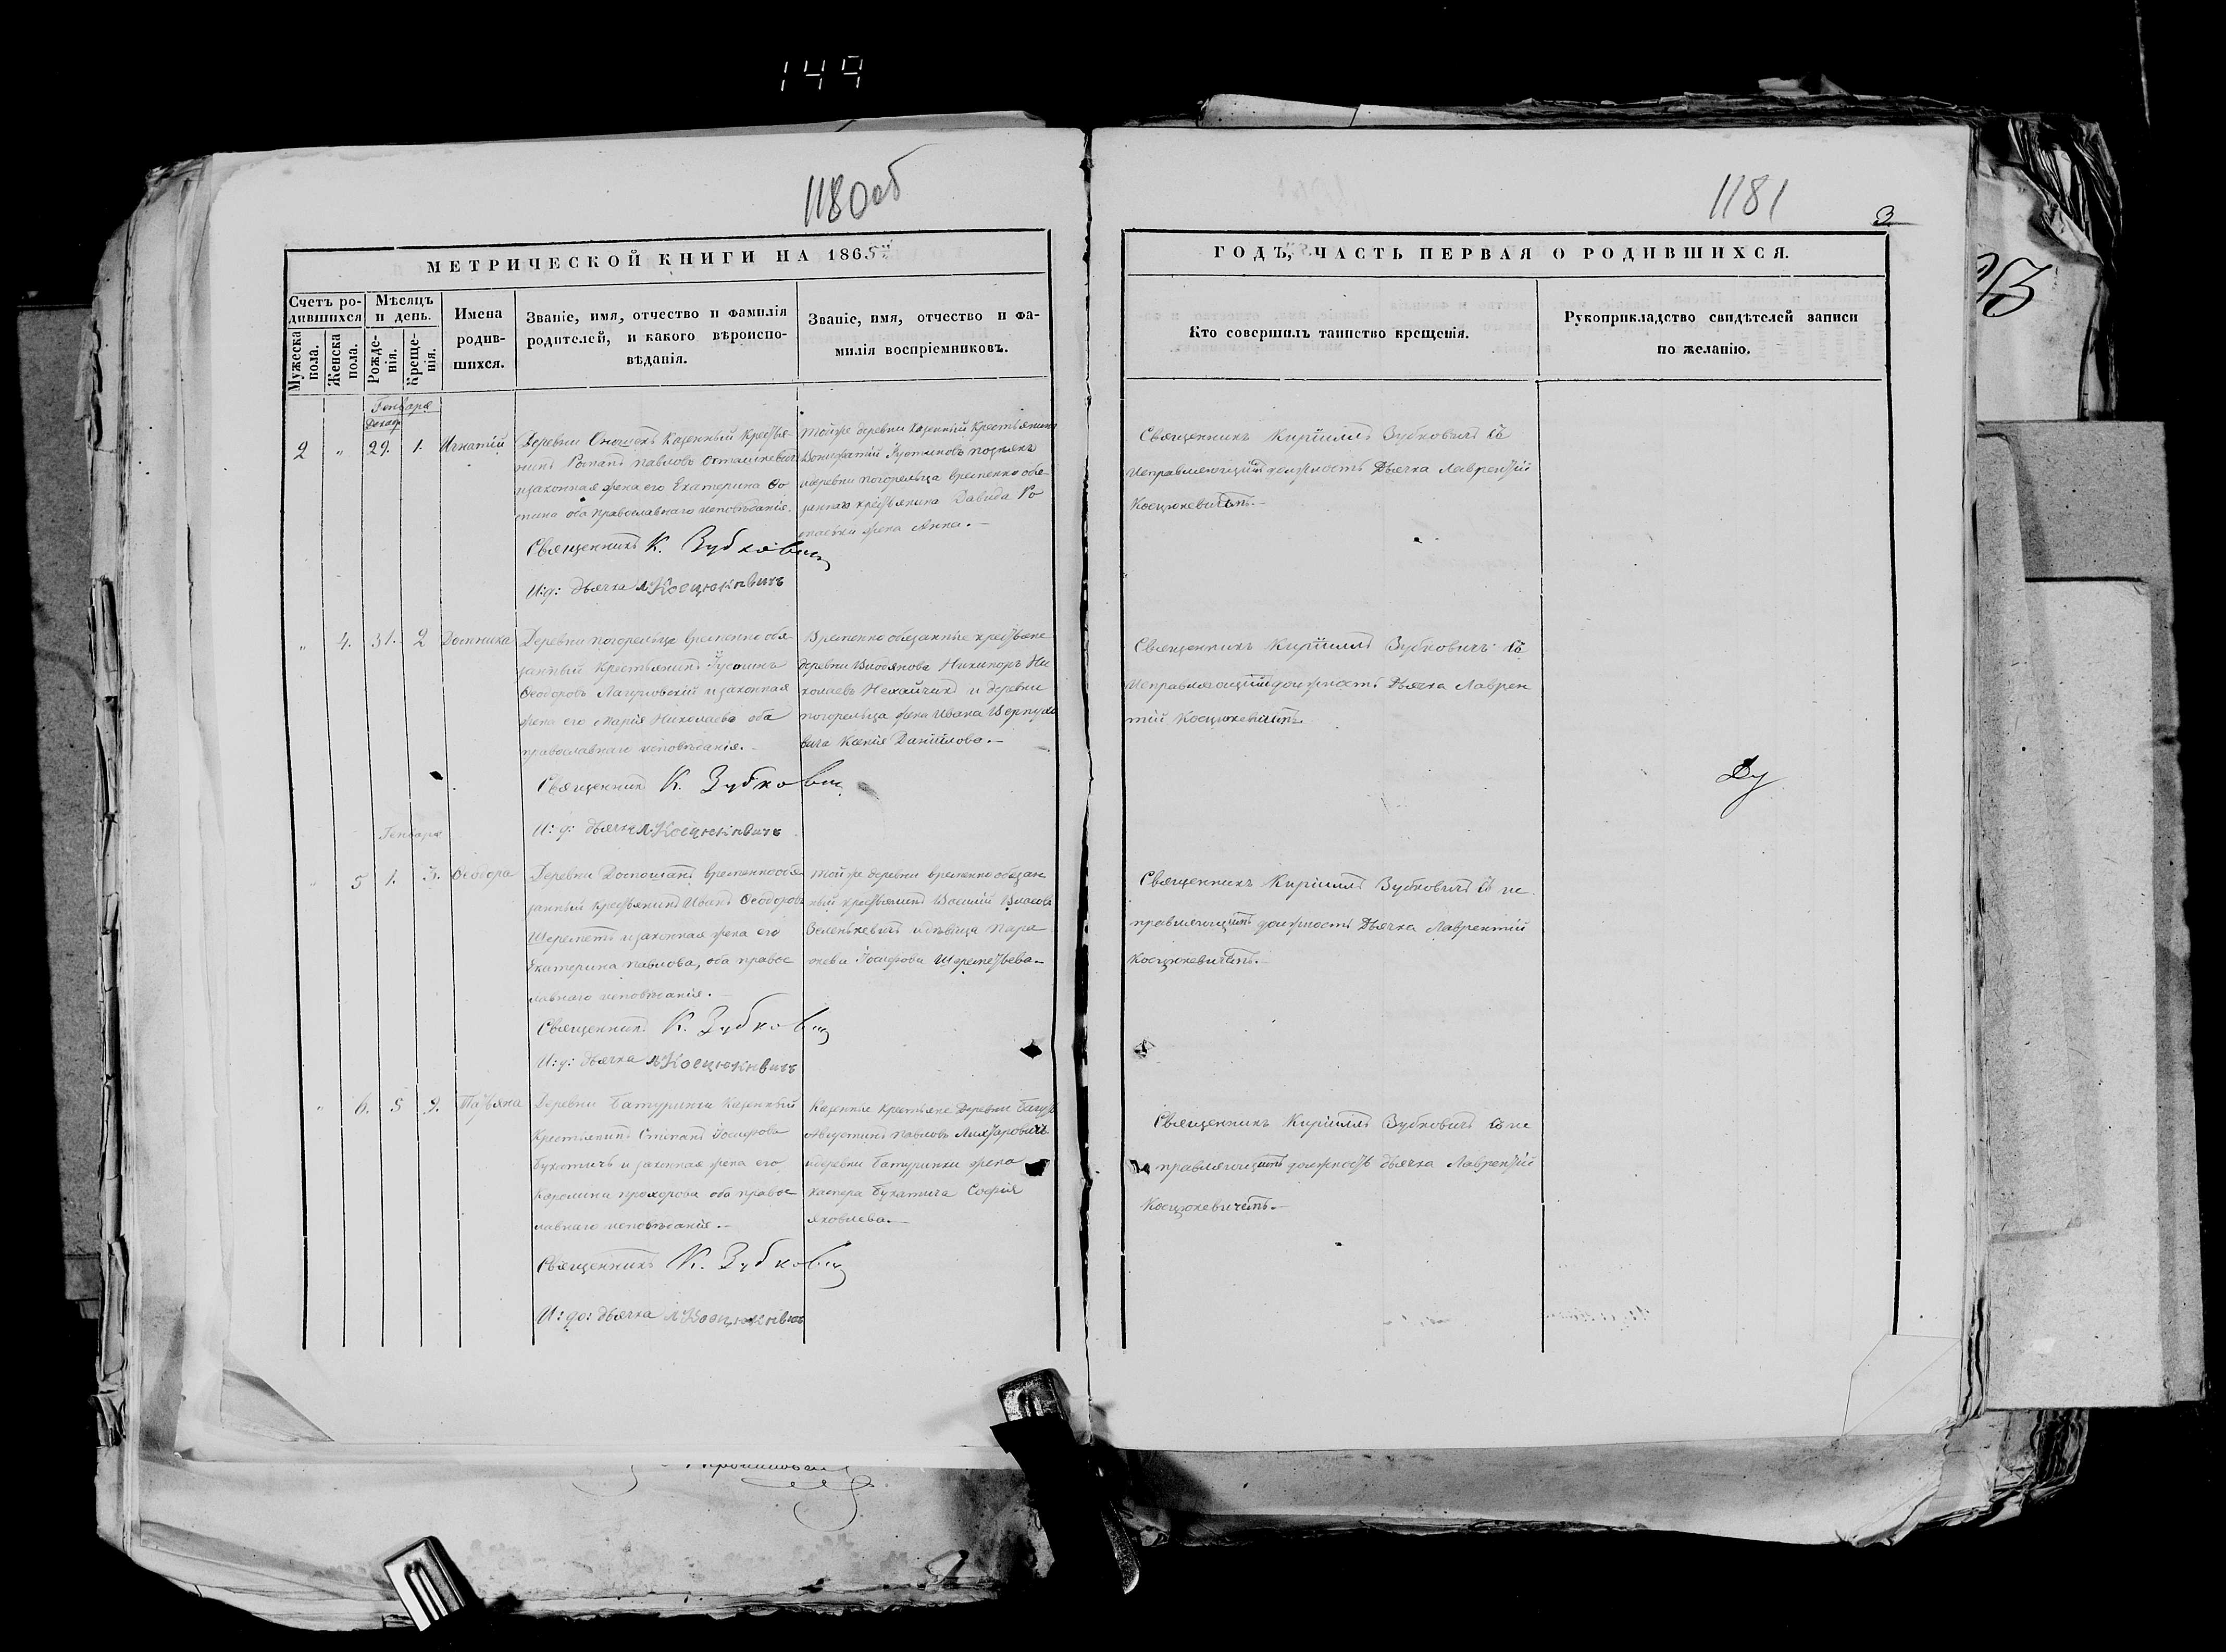 149
1180 об
1181
3
МЕТРИЧЕСКОЙ КНИГИ НА 1865
ГОДЪ, ЧАСТЬ ПЕРВАЯ О РОДИВШИХСЯ.
Счетъ ро-
дившихся
Мужеска
пола.
Женска
пола.
Мѣсяцъ
и день.
Рожде-
нія.
Креще-
нія.
Имена
родив-
шихся.
Званіе, имя, отчество и фамилія
родителей, и какого вѣроиспо-
вѣданія.
Званіе, имя, отчество и фа-
милія воспріемниковъ.
Кто совершилъ таинство крещенія.
Рукоприкладство свидѣтелей записи
по желанію.
Генваря
Декаб.
2 " 29. 1. Игнатій
Деревни Казенный Крестья-
нинъ Романъ Павловъ Осташкевичъ
и законная жена его Екатерина Ѳо
мина оба православнаго исповѣданія.
Священникъ К. Зубковичъ
И: д: дьячка Л. Косцюкевичъ
Тойже деревни казенный Крестьянинъ
Вонифатій Іустиновъ
и деревни Погорельца временно обя-
заннаго крестьянина Давида Ро
жена Анна.-
Священникъ Кириллъ Зубковичъ съ
Исправляющимъ должность Дьячка Лаврентій
Косцюкевичемъ.-
" 4. 31. 2 Домника
Деревни Погорельца временно обя-
занный Крестьянинъ Іустинъ
Ѳеодоровъ и законная
жена его Марія Николаева оба
православнаго исповѣданія.-
Священникъ К. Зубковичъ
И: д: дьячка Л. Косцюкевичъ
Временно обязанные крестьяне
деревни Никипоръ Ни
колаевъ Нехайчикъ и деревни
Погорельца жена Ивана Шерпуко
вича Ксенія Даніилова.-
Священникъ Кириллъ Зубковичъ съ
Исправляющимъ должность Дьячка Лаврен
тій Косцюкевичемъ.
Ду
Генваря
" 5 1. 3. Ѳеодора
Деревни Домашанъ временно обя
занный крестьянинъ Иванъ Ѳеодоровъ
Шереметъ и законная жена его
Екатерина Павлова, оба правос
лавнаго исповѣданія.-
Священникъ К. Зубковичъ
И: д: дьячка Л. Косцюкевичъ
Тойже деревни временно обязан
ный крестьянинъ Василій Власовъ
Зеленкевичъ и дѣвица Пара
скева Іосифова Шереметьева.-
Священникъ Кириллъ Зубковичъ съ ис
правляющимъ должность Дьячка Лаврентій
Косцюкевичемъ.-
" 6. 5 9. Татьяна
Деревни Батуринки Казенный
Крестьянинъ Степанъ Іосифовъ
Букатичъ и законная жена его
Каролина Прохорова оба правос
лавнаго исповѣданія.-
Священникъ К. Зубковичъ
И: до: дьячка Л. Косцюкевичъ
Казенные крестьяне Деревни
Августинъ Павловъ
и деревни Батуринки жена
Каспера Букатича Софія
Яковлева.-
Священникъ Кириллъ Зубковичъ съ ис
правляющимъ должность дьячка Лаврентій
Косцюкевичемъ.-